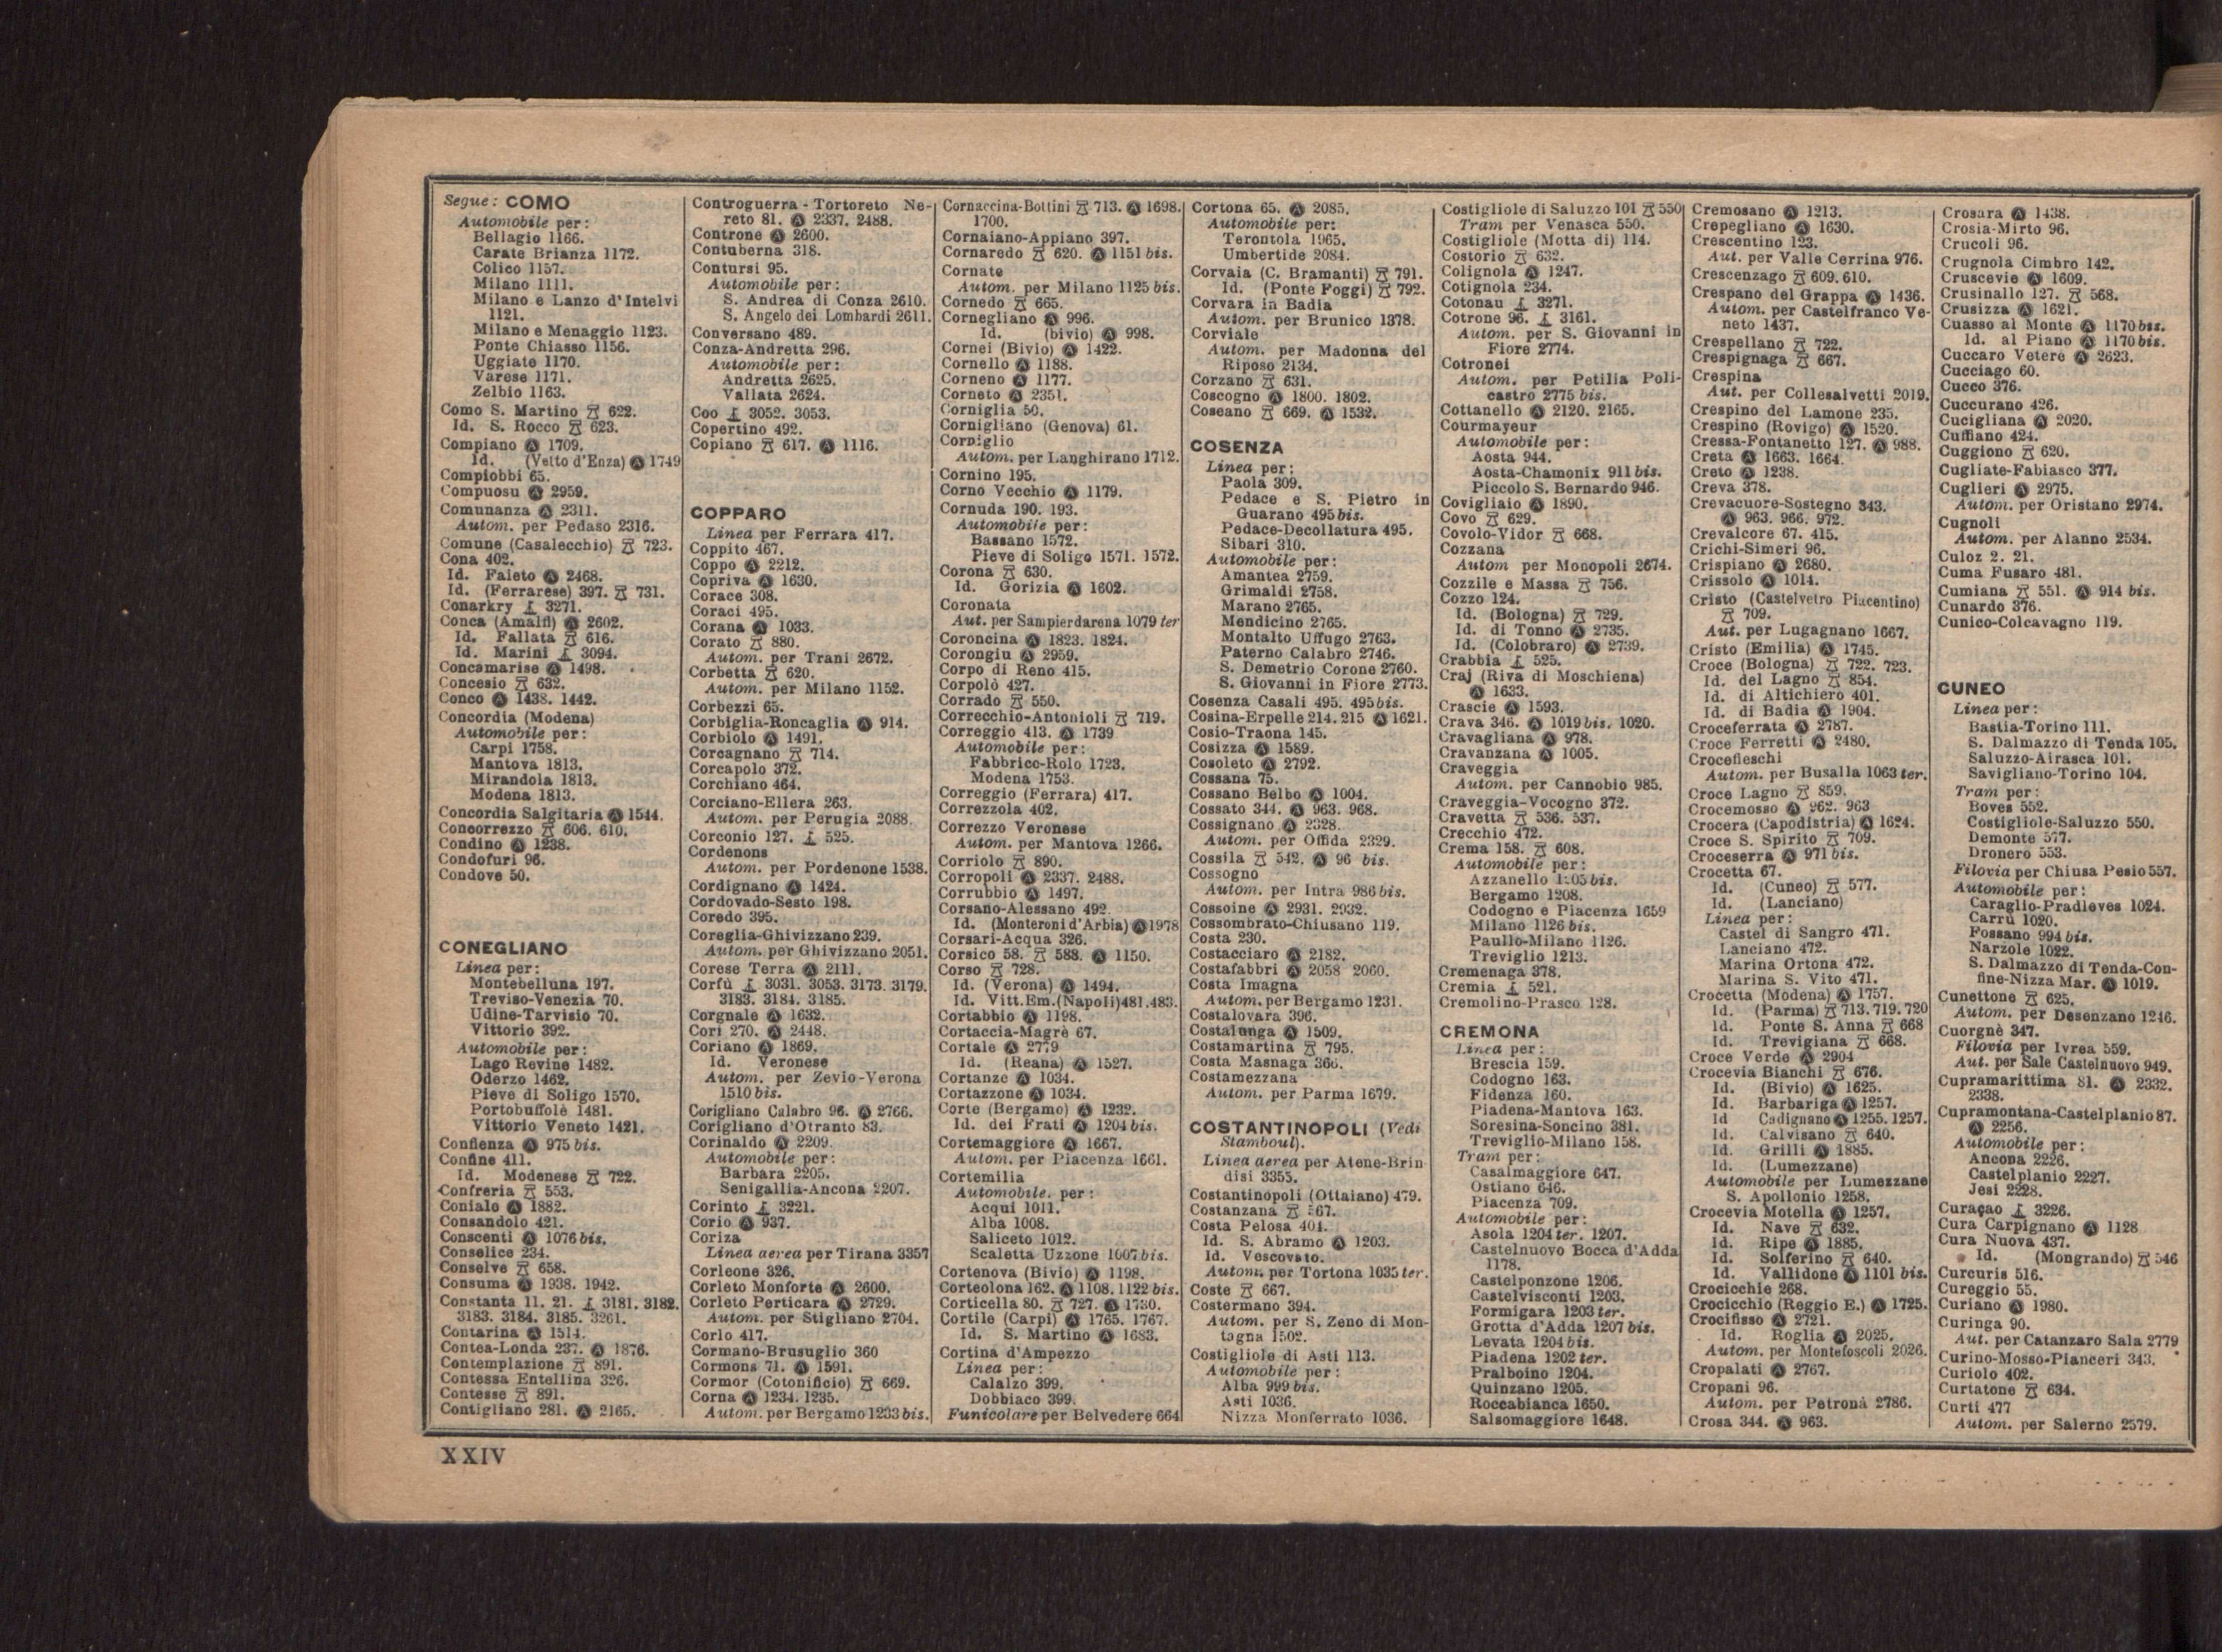 Segue: COMO
Automobile per:
Bellagio 1166.
Carate Brianza 1172.
Colico 1157.
Milano 1111.
Milano e Lanzo d'Intelvi
1121.
Milano e Menaggio 1123.
Ponte Chiasso 1156.
Uggiate 1170.
Varese 1171.
Zelbio 1163.
Como S. Martino 622.
Id. S. Rocco 623.
Compiano A 1709.
Id. (Vetto d'Enza) A 1749
Compiobbi 65.
Compuosu A 2959.
Comunanza A 2311.
Autom. per Pedaso 2316.
Comune (Casalecchio) 723.
Cona 402.
Id. Faleto A 2468.
Id. (Ferrarese) 397. 731.
Conarkry 3271.
Conca (Amalfi) A 2602.
Id. Fallata 616.
Id. Marini 3094.
Concamarise A 1498.
Concesio 632.
Conco A 1438. 1442.
Concordia (Modena)
Automobile per:
Carpi 1758.
Mantova 1813.
Mirandola 1813.
Modena 1813.
Concordia Salgitaria A 1544.
Concorrezzo 606. 610.
Condino A 1238.
Condofuri 96.
Condove 50.
CONEGLIANO
Linea per:
Montebelluna 197.
Treviso-Venezia 70.
Udine-Tarvisio 70.
Vittorio 392.
Automobile per:
Lago Revine 1482.
Oderzo 1462.
Pieve di Soligo 1570.
Portobuffolè 1481.
Vittorio Veneto 1421.
Confienza A 975 bis.
Confine 411.
Id. Modenese 722.
Confreria 553.
Coniale A 1882.
Consandolo 421.
Conscenti A 1076 bis.
Conselice 234.
Conselve 658.
Consuma A 1938. 1942.
Constanta 11. 21. 3181. 3182.
3183. 3184. 3185. 3261.
Contarina A 1514.
Contea-Londa 237. A 1876.
Contemplazione 891.
Contessa Entellina 326.
Contesse 891.
Contigliano 281. A 2165.
Controguerra - Tortoreto Ne-
reto 81. A 2337. 2488.
Controne A 2600.
Contuberna 318.
Contursi 95.
Automobile per:
S. Andrea di Conza 2610.
S. Angelo dei Lombardi 2611.
Conversano 489.
Conza-Andretta 296.
Automobile per:
Andretta 2625.
Vallata 2624.
Coo 3052. 3053.
Copertino 492.
Copiano 617. A 1116.
COPPARO
Linea per Ferrara 417.
Coppito 467.
Coppo A 2212.
Copriva A 1630.
Corace 308.
Coraci 495.
Corana A 1033.
Corato 880.
Autom. per Trani 2672.
Corbetta 620.
Autom. per Milano 1152.
Corbezzi 65.
Corbiglia-Roncaglia A 914.
Corbiolo A 1491.
Corcagnano 714.
Corcapolo 372.
Corchiano 464.
Corciano-Ellera 263.
Autom. per Perugia 2088.
Corconio 127. 525.
Cordenons
Autom. per Pordenone 1538.
Cordignano A 1424.
Cordovado-Sesto 198.
Coredo 395.
Coreglia-Ghivizzano 239.
Autom. per Ghivizzano 2051.
Corese Terra A 2111.
Corfù 3031. 3053. 3173. 3179.
3183. 3184. 3185.
Corgnale A 1632.
Cori 270. A 2448.
Coriano A 1869.
Id. Veronese
Autom. per Zevio-Verona
1510 bis.
Corigliano Calabro 96. A 2766.
Corigliano d'Otranto 83.
Corinaldo A 2209.
Automobile per:
Barbara 2205.
Senigallia-Ancona 2207.
Corinto 3221.
Corio A 937.
Coriza
Linea aerea per Tirana 3357
Corleone 326.
Corleto Monforte A 2600.
Corleto Perticara A 2729.
Autom. per Stigliano 2704.
Corlo 417.
Cormano-Brusuglio 360
Cormons 71. A 1591.
Cormor (Cotonificio) 669.
Corna A 1234. 1235.
Autom. per Bergamo 1233 bis.
Cornaccina-Bottini 713. A 1698.
1700.
Cornaiano-Appiano 397.
Cornaredo 620. A 1151 bis.
Cornate
Autom. per Milano 1125 bis.
Cornedo 665.
Cornegliano A 996.
Id. (bivio) A 998.
Cornei (Bivio) A 1422.
Cornello A 1188.
Corneno A 1177.
Corneto A 2351.
Corniglia 50.
Cornigliano (Genova) 61.
Corniglio
Autom. per Langhirano 1712.
Cornino 195.
Corno Vecchio A 1179.
Cornuda 190. 193.
Automobile per:
Bassano 1572.
Pieve di Soligo 1571. 1572.
Corona 630.
Id. Gorizia A 1602.
Coronata
Aut. per Sampierdarena 1079 ter
Coroncina A 1823. 1824.
Corongiu A 2959.
Corpo di Reno 415.
Corpolò 427.
Corrado 550.
Correcchio-Antonioli 719.
Correggio 413. A 1739
Automobile per:
Fabbrico-Rolo 1723.
Modena 1753.
Correggio (Ferrara) 417.
Correzzola 402.
Correzzo Veronese
Autom. per Mantova 1266.
Corriolo 890.
Corropoli A 2337. 2488.
Corrubbio A 1497.
Corsano-Alessano 492.
Id. (Monteroni d'Arbia) A 1978
Corsari-Acqua 326.
Corsico 58. 588. A 1150.
Corso 728.
Id. (Verona) A 1494.
Id. Vitt.Em.(Napoli)481.483.
Cortabbio A 1198.
Cortaccia-Magrè 67.
Cortale A 2779
Id. (Reana) A 1527.
Cortanze A 1034.
Cortazzone A 1034.
Corte (Bergamo) A 1232.
Id. dei Frati A 1204 bis.
Cortemaggiore A 1667.
Autom. per Piacenza 1661.
Cortemilia
Automobile. per:
Acqui 1011.
Alba 1008.
Saliceto 1012.
Scaletta Uzzone 1007 bis.
Cortenova (Bivio) A 1198.
Corteolona 162. A 1108. 1122 bis.
Corticella 80. 727. A 1730.
Cortile (Carpi) A 1765. 1767.
Id. S. Martino A 1683.
Cortina d'Ampezzo
Linea per:
Calalzo 399.
Dobbiaco 399.
Funicolare per Belvedere 664
Cortona 65. A 2085.
Automobile per:
Terontola 1965.
Umbertide 2084.
Corvaia (C. Bramanti) 791.
Id. (Ponte Foggi) 792.
Corvara in Badia
Autom. per Brunico 1378.
Corviale
Autom. per Madonna del
Riposo 2134.
Corzano 631.
Coscogno A 1800. 1802.
Coseano 669. A 1532.
COSENZA
Linea per:
Paola 309.
Pedace e S. Pietro in
Guarano 495 bis.
Pedace-Decollatura 495.
Sibari 310.
Automobile per:
Amantea 2759.
Grimaldi 2758.
Marano 2765.
Mendicino 2765.
Montalto Uffugo 2763.
Paterno Calabro 2746.
S. Demetrio Corone 2760.
S. Giovanni in Fiore 2773.
Cosenza Casali 495. 495 bis.
Cosina-Erpelle 214. 215 A 1621.
Cosio-Traona 145.
Cosizza A 1589.
Cosoleto A 2792.
Cossana 75.
Cossano Belbo A 1004.
Cossato 344. A 963. 968.
Cossignano A 2328.
Autom. per Offida 2329.
Cossila 542. A 96 bis.
Cossogno
Autom. per Intra 986 bis.
Cossoine A 2931. 2932.
Cossombrato-Chiusano 119.
Costa 230.
Costacciaro A 2182.
Costafabbri A 2058 2060.
Costa Imagna
Autom. per Bergamo 1231.
Costalovara 396.
Costalunga A 1509.
Costamartina 795.
Costa Masnaga 366.
Costamezzana
Autom. per Parma 1679.
COSTANTINOPOLI (Vedi
Stamboul).
Linea aerea per Atene-Brin
disi 3355.
Costantinopoli (Ottaiano) 479.
Costanzana 567.
Costa Pelosa 404.
Id. S. Abramo A 1203.
Id. Vescovato.
Autom. per Tortona 1035 ter.
Coste 667.
Costermano 394.
Autom. per S. Zeno di Mon-
tagna 1502.
Costigliole di Asti 113.
Automobile per:
Alba 999 bis.
Asti 1036.
Nizza Monferrato 1036.
Costigliole di Saluzzo 101 550
Tram per Venasca 550.
Costigliole (Motta di) 114.
Costorio 632.
Colignola A 1247.
Cotignola 234.
Cotonau 3271.
Cotrone 96. 3161.
Autom. per S. Giovanni in
Fiore 2774.
Cotronei
Autom. per Petilia Poli-
castro 2775 bis.
Cottanello A 2120. 2165.
Courmayeur
Automobile per:
Aosta 944.
Aosta-Chamonix 911 bis.
Piccolo S. Bernardo 946.
Covigliaio A 1890.
Covo 629.
Covolo-Vidor 668.
Cozzana
Autom per Monopoli 2674.
Cozzile e Massa 756.
Cozzo 124.
Id. (Bologna) 729.
Id. di Tonno A 2735.
Id. (Colobraro) A 2739.
Crabbia 525.
Craj (Riva di Moschiena)
A 1633.
Crascie A 1593.
Crava 346. A 1019 bis. 1020.
Cravagliana A 978.
Cravanzana A 1005.
Craveggia
Autom. per Cannobio 985.
Craveggia-Vocogno 372.
Cravetta 536. 537.
Crecchio 472.
Crema 158. 608.
Automobile per:
Azzanello 1205 bis.
Bergamo 1208.
Codogno e Piacenza 1659
Milano 1126 bis.
Paullo-Milano 1126.
Treviglio 1213.
Cremenaga 378.
Cremia 521.
Cremolino-Prasco 128.
CREMONA
Linea per:
Brescia 159.
Codogno 163.
Fidenza 160.
Piadena-Mantova 163.
Soresina-Soncino 381.
Treviglio-Milano 158.
Tram per:
Casalmaggiore 647.
Ostiano 646.
Piacenza 709.
Automobile per:
Asola 1204 ter. 1207.
Castelnuovo Bocca d'Adda
1178.
Castelponzone 1206.
Castelvisconti 1203.
Formigara 1203 ter.
Grotta d'Adda 1207 bis.
Levata 1204 bis.
Piadena 1202 ter.
Pralboino 1204.
Quinzano 1205.
Roccabianca 1650.
Salsomaggiore 1648.
Cremosano A 1213.
Crepegliano A 1630.
Crescentino 123.
Aut. per Valle Cerrina 976.
Crescenzago 609. 610.
Crespano del Grappa A 1436.
Autom. per Castelfranco Ve-
neto 1437.
Crespellano 722.
Crespignaga 667.
Crespina
Aut. per Collesalvetti 2019.
Crespino del Lamone 235.
Crespino (Rovigo) A 1520.
Cressa-Fontanetto 127. A 988.
Creta A 1663. 1664.
Creto A 1238.
Creva 378.
Crevacuore-Sostegno 343.
A 963. 966. 972.
Crevalcore 67. 415.
Crichi-Simeri 96.
Crispiano A 2680.
Crissolo A 1014.
Cristo (Castelvetro Piacentino)
709.
Aut. per Lugagnano 1667.
Cristo (Emilia) A 1745.
Croce (Bologna) 722. 723.
Id. del Lagno 854.
Id. di Altichiero 401.
Id. di Badia A 1904.
Croceferrata A 2787.
Croce Ferretti A 2480.
Crocefieschi
Autom. per Busalla 1063 ter.
Croce Lagno 859.
Crocemosso A 962. 963
Crocera (Capodistria) A 1624.
Croce S. Spirito 709.
Croceserra A 971 bis.
Crocetta 67.
Id. (Cuneo) 577.
Id. (Lanciano)
Linea per:
Castel di Sangro 471.
Lanciano 472.
Marina Ortona 472.
Marina S. Vito 471.
Crocetta (Modena) A 1757.
Id. (Parma) 713. 719. 720
Id. Ponte S. Anna 668
Id. Trevigiana 668.
Croce Verde A 2904
Crocevia Bianchi 676.
Id. (Bivio) A 1625.
Id. Barbariga A 1257.
Id Cadignano A 1255. 1257.
Id. Calvisano 640.
Id. Grilli A 1885.
Id. (Lumezzane)
Automobile per Lumezzane
S. Apollonio 1258.
Crocevia Motella A 1257.
Id. Nave 632.
Id. Ripe A 1885.
Id. Solferino 640.
Id. Vallidone A 1101 bis.
Crocicchie 268.
Crocicchio (Reggio E.) A 1725.
Crocifisso A 2721.
Id. Roglia A 2025.
Autom. per Montefoscoli 2026.
Cropalati A 2767.
Cropani 96.
Autom. per Petronà 2786.
Crosa 344. A 963.
Crosara A 1438.
Crosia-Mirto 96.
Crucoli 96.
Crugnola Cimbro 142.
Cruscevie A 1609.
Crusinallo 127. 568.
Crusizza A 1621.
Cuasso al Monte A 1170 bis.
Id. al Piano A 1170 bis.
Cuccaro Vetere A 2623.
Cucciago 60.
Cucco 376.
Cuccurano 426.
Cucigliana A 2020.
Cuffiano 424.
Cuggiono 620.
Cugliate-Fabiasco 377.
Cuglieri A 2975.
Autom. per Oristano 2974.
Cugnoli
Autom. per Alanno 2534.
Culoz 2. 21.
Cuma Fusaro 481.
Cumiana 551. A 914 bis.
Cunardo 376.
Cunico-Colcavagno 119.
CUNEO
Linea per:
Bastia-Torino 111.
S. Dalmazzo di Tenda 105.
Saluzzo-Airasca 101.
Savigliano-Torino 104.
Tram per:
Boves 552.
Costigliole-Saluzzo 550.
Demonte 577.
Dronero 553.
Filovia per Chiusa Pesio 557.
Automobile per:
Caraglio-Pradleves 1024.
Carrù 1020.
Fossano 994 bis.
Narzole 1022.
S. Dalmazzo di Tenda-Con-
fine-Nizza Mar. A 1019.
Cunettone 625.
Autom. per Desenzano 1246.
Cuorgnè 347.
Filovia per Ivrea 559.
Aut. per Sale Castelnuovo 949.
Cupramarittima 81. A 2332.
2338.
Cupramontana-Castelplanio 87.
A 2256.
Automobile per:
Ancona 2226.
Castelplanio 2227.
Jesi 2228.
Curaçao 3226.
Cura Carpignano A 1128
Cura Nuova 437.
Id. (Mongrando) 546
Curcuris 516.
Cureggio 55.
Curiano A 1980.
Curinga 90.
Aut. per Catanzaro Sala 2779
Curino-Mosso-Pianceri 343.
Curiolo 402.
Curtatone 634.
Curti 477
Autom. per Salerno 2579.
XXIV